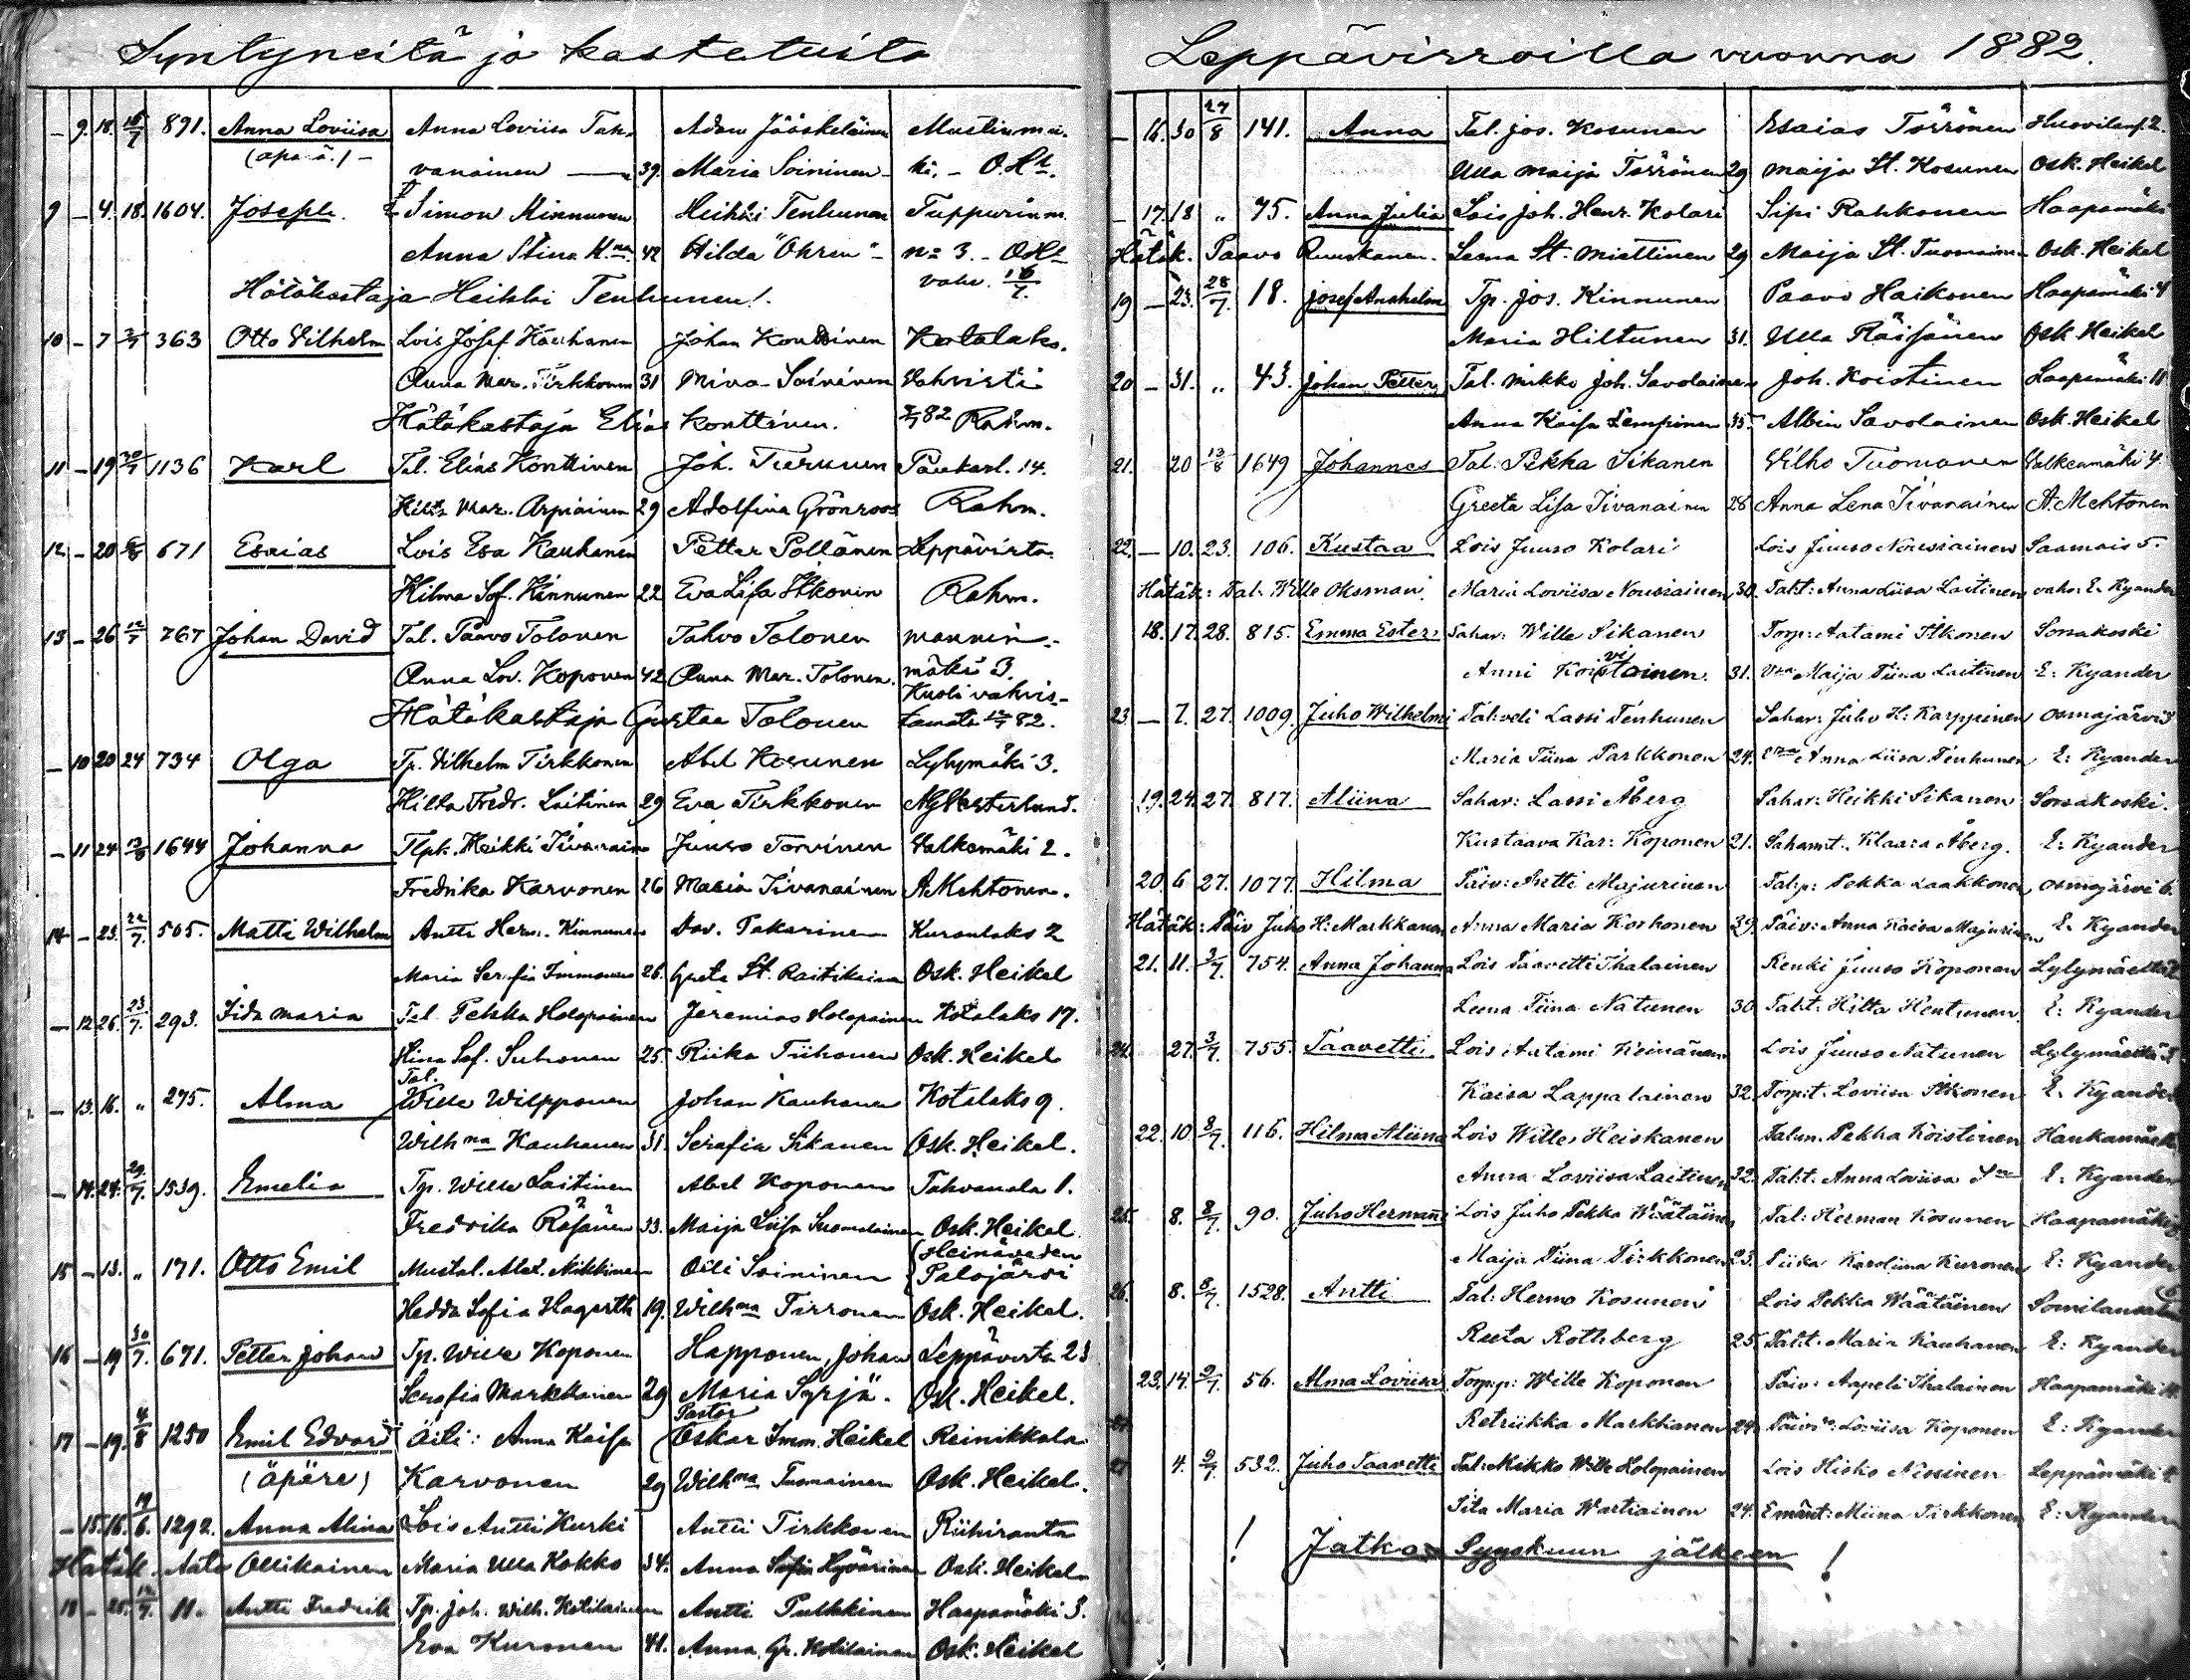 Syntyneitä ja kastetuita
— 9. 18. 16/7 891. Anna Loviisa Anna Loviisa Tah- Adam Jääskeläinen Mustinmä-
(äpärä) vanainen 39. Maria Soininen ki. - O. Hl.
9 — 4. 18. 1604. Joseph. Simon Kinnunen Heikki Tenhunen Tuppurinm.
Anna Stina K:nen 42 Hilda "Ohren" no 3. - O. Hl
Hätäkastaja Heikki Tenhunen. vahv. 18/7.
10 — 7 363 Otto Vilhelm Lois Josef Kauhanen Johan Konttinen Kotalaks.
Anna Mar. Tirkkonen 31 Mina Soininen Vahvisti
Hätäkastaja Elias Konttinen. 82 Rahm.
11 — 19 30/7 1136 Karl Tal. Elias Konttinen Joh. Turunen Paukarl. 14.
Hilta Mar. Arpiainen 29 Adolfina Grönroos Rahm.
12. — 20 671 Esaias Lois Esa Kauhanen Petter Pöllänen Leppävirta
Hilma Sof. Kinnunen 22 Eva Lisa Itkonen Rahm.
13 — 26 12/7 767 Johan David Tal. Paavo Tolonen Tahvo Tolonen Mannin-
Anna Lov. Koponen 42 Anna Mar. Tolonen. mäki 3.
Kuoli vahvis-
Hätäkastaja Gustaa Tolonen tamata 12/7 82.
— 10 20 24 734 Olga Tp. Vilhelm Tirkkonen Abel Kosunen Lylymäki 3.
Hilta Fredr. Laitinen 29 Eva Tirkkonen A G Westerlund.
— 11 24 13/8 1644 Johanna Tlpk. Heikki Iivanain Juuso Torvinen Valkemäki 2.
Fredrika Karvonen 26 Maria Iivanainen A. Mehtonen.
14 — 23. 22/7. 505. Matti Wilhelm Antti Herm. Kinnunen Dav. Pakarinen Kuronlaks 2
Maria Serafia Immonen 26. Greta St. Raitikainen Osk. Heikel
— 12. 26. 23/7. 293. Iida Maria Tal. Pekka Holopainen Jeremias Holopainen Kotalaks 17.
Stina Sof. Suhonen 25. Riika Tiihonen Osk. Heikel
Tal.
— 13. 16. „ 275. Alma Wille Wilpponen Johan Kauhanen Kotalaks 9.
Wilhna Kauhanen 31. Serafia Sikanen Osk. Heikel.
— 14. 24. 29/7. 1539. Emelia Tp. Wille Laitinen Abel Koponen Tahvanala 1.
Fredrika Räsänen 33. Maija Liisa Suomalainen Osk. Heikel
(Heinäveden
15 — 13. „ 171. Otto Emil Mustal. Alex. Nikkinen Olli Soininen Palojärvi
Hedda Sofia Hagerth 19. Wilhna Tirronen Osk. Heikel.
16 — 19 30/7. 671. Petter Johan Tp. Wille Koponen Happonen, Johan Leppävirta 23
Serafia Markkanen 29 Maria Syrjä. Osk. Heikel.
Pastor
17 — 19. 4/8 1250 Emil Edvard Äiti: Anna Kaisa Oskar Imm. Heikel Reinikkala
(äpäre) Karvonen 29 Wilhna Tuomainen Osk. Heikel.
— 15. 16. 19/6. 1292. Anna Alina Lois Antti Kurki Antti Tirkkonen Riihiranta
Hätäk. Aate Ollikainen Maria Ulla Kokko 34. Anna Sofia Hyvärinen Osk. Heikel
18 — 25. 12/7. 11. Antti Fredrik Tp. Joh. Wilh. Kotilainen Antti Pulkkinen Haapamäki 3.
Eva Kuronen 41. Anna Gr. Kotilainen Osk. Heikel
Leppävirroilla vuonna 1882.
— 16. 30 27/8 141. Anna Tal. Jos. Kosunen Esaias Törrönen
Ulla Maija Törrönen 29 Maija St. Kosunen Osk. Heikel
— 17. 18 „ 75. Anna Julia Lois Joh. Henr. Kolari Sipi Rahkonen Haapamäki
Hätäk. Paavo Ruuskanen. Leena St. Miettinen 29 Maija St. Tuomainen Osk. Heikel
19 — 23. 28/7. 18. Josef Anshelm Tp. Jos. Kinnunen Paavo Haikonen Haapamäki 4
Maria Hiltunen 31. Ulla Räisänen Osk Heikel
20 — 31. „ 43. Johan Petter Tal. Mikko Joh. Savolainen Joh. Koistinen Haapamäki 11
Anna Kaisa Lempinen 35. Albin Savolainen Osk. Heikel
21. 20 13/8 1649 Johannes Tal: Pekka Sikanen Vilho Tuomanen Valkeamäki 4.
Greeta Lisa Iivanainen 28 Anna Lena Iivanainen A. Mehtonen
22. — 10. 23. 106. Kustaa Lois Juuso Kolari Lois Juuso Nousiainen Saamais 5.
Hätäk: Tal. Wille Oksman. Maria Loviisa Nousiainen 30. Tal:t: Anna Liisa Laitinen vahv. E. Kyander
18. 17. 28. 815. Emma Ester: Sahav: Wille Sikanen Torp: Aatami Itkonen Sorsakoski
Anni Koivistoinen 31. Maija Tiina Laitinen E: Kyander
23 — 7. 27. 1009. Juho Wilhelmi Tal:veli Lassi Tenhunen Sahav: Juho H: Karppinen Osmajärvi
Maria Tiina Parkkonen 24. Anna Liisa Tenhunen E: Kyander
19. 24. 27. 817. Aliina Sahav: Lassi Åberg Sahav: Heikki Sikanen Sorsakoski.
Kustaava Kar: Koponen 21. Saham:t. Klaara Åberg. E: Kyander
20. 6 27. 1077. Hilma Päiv: Antti Majurinen Tal:p: Pekka Laakkonen Osmajärvi 6.
Hätäk: Päiv Juho H: Markkanen Anna Maria Korhonen 39. Päiv: Anna Kaisa Majurinen E. Kyander
21. 11. 3/7. 754. Anna Johanna Lois Taavetti Ihalainen Renki Juuso Koponen Lylymäeltä
Leena Tiina Natunen 30 Tal:t: Hilta Hentunen E: Kyander
24. 27. 3/7. 755. Taavetti Lois Aatami Heinänen Lois Juuso Natunen Lylymäeltä 3.
Kaisa Lappalainen 32. Torp:t. Loviisa Itkonen E. Kyander
22. 10. 8/7. 116. Hilma Aliina Lois Wille Heiskanen Talun. Pekka Koistinen
Anna Loviisa Laitinen 32. Tal:t. Anna Loviisa E. Kyander
25. 8. 8/7. 90. Juho Hermanni Lois Juho Pekka Wäätäinen Tal: Herman Kosunen Haapamäki
Maija Tiina Tirkkonen 23. Piika Karoliina Kuronen E: Kyander
26. 8. 8/7. 1528. Antti Tal: Hermo Kosunen Lois Pekka Wäätäinen
Reeta Rothberg 25. Tal:t. Maria Kauhanen E: Kyander
23. 14. 9/7. 56. Alma Loviisa Torp:p: Wille Koponen Päiv: Aapeli Ihalainen Haapamäki
Retriikka Markkanen 24. Loviisa Koponen E: Kyander
27 4. 9/7. 532. Juho Taavetti Tal: Mikko Wille Holopainen Lois Hisko Nissinen Leppämäki
Iita Maria Wartiainen 24. Emänt: Miina Tirkkonen E: Kyander
! Jatkos Syyskuun jälkeen !